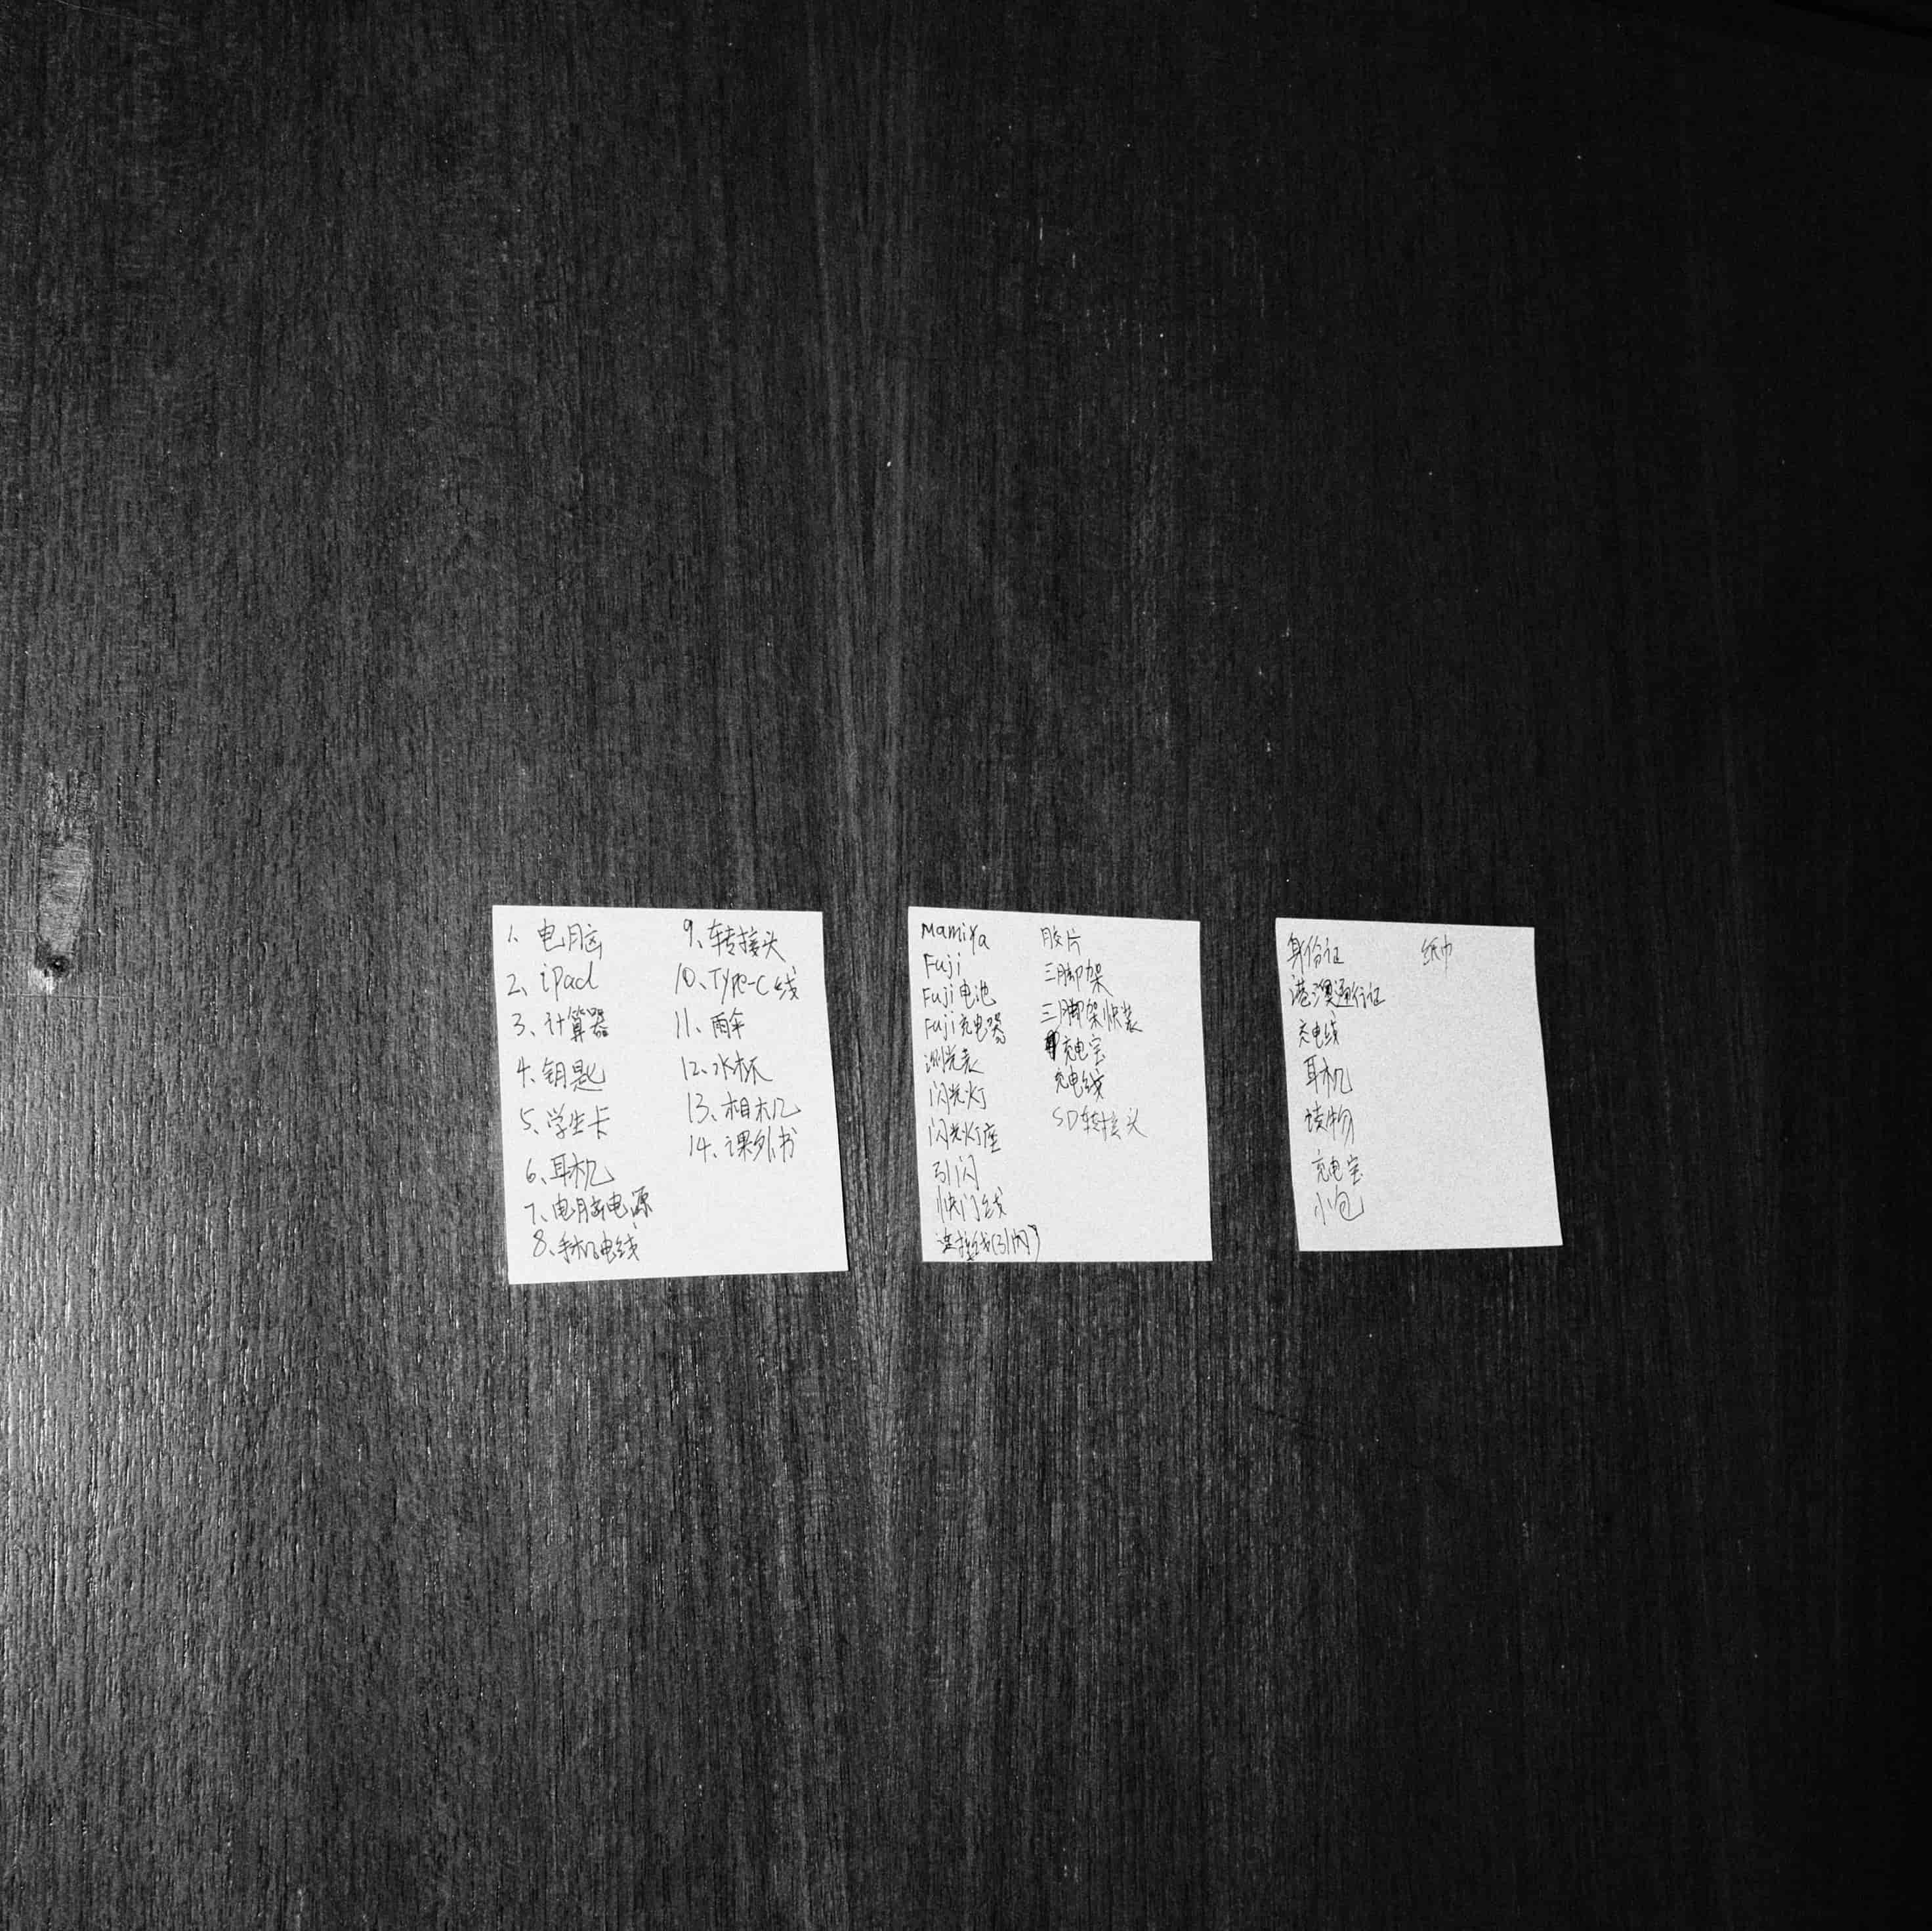 1、电脑
2、ipad
3、计算器
4、钥匙
5、学生卡
6、耳机
7、电脑电源
8、手机电线
9、转接头
10、Type-C线
11、雨伞
12、水杯
13、相机
14、课外书
Mamiya
Fuji
Fuji电池
Fuji充电器
测光表
闪光灯
闪光灯座
引闪
快门线
连接线(引闪)
胶片
三脚架
三脚架快装
充电宝
充电线
SD转接头
身份证
港澳通行证
充电线
耳机
读物
充电宝
小包
纸巾